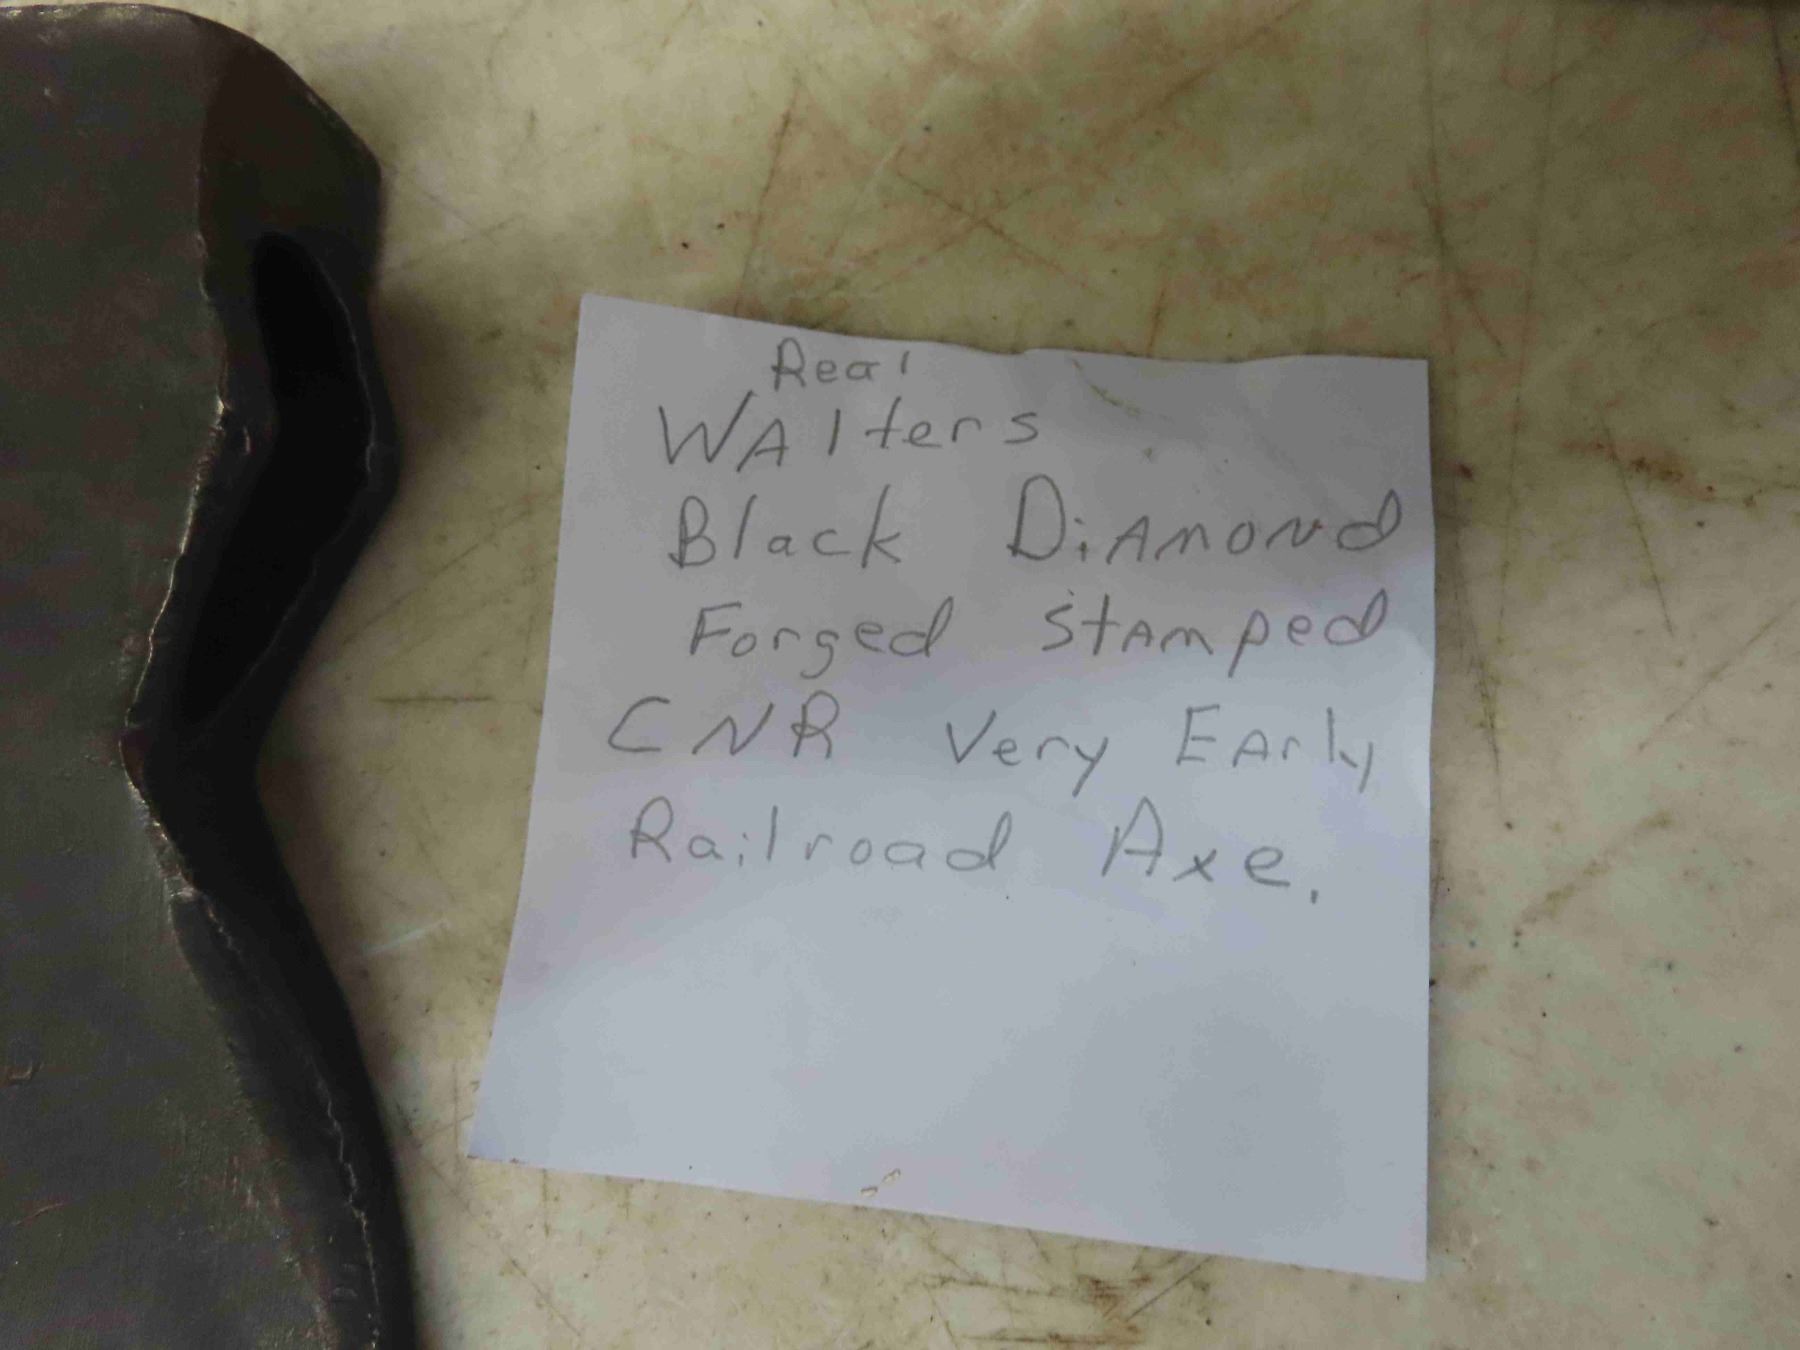 Real
WAlters
Black DiAmond
Forged stAmped
CNR Very EArly
Railroad Axe.